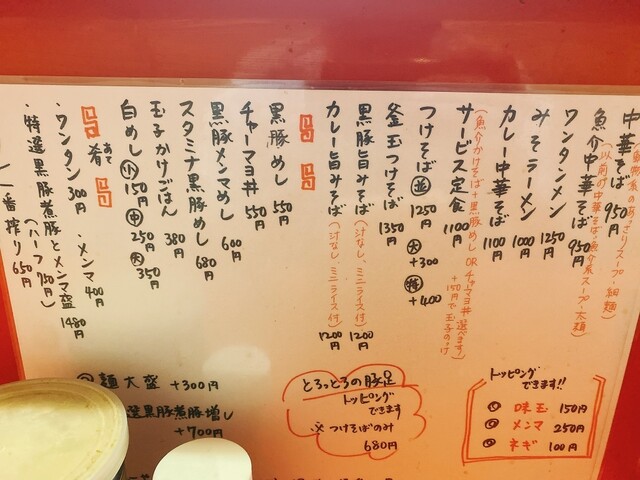 中華そば 950円
あっさりスープ・細麺)
魚介中華そば 950円
(以前の中華そば・魚介系スープ・太麺)
ワンタンメン 1250円
みそラーメン 1000円
カレー中華そば 1100円
サービス定食 1100円
(魚介かけそば+黒豚めし OR チャーマヨ丼 選べます)
+150円で玉子のっけ
つけそば 並 1250円 大 +300 特 +400
釜玉つけそば 1350円
黒豚旨みそば (汁なし、ミニライス付) 1200円
カレー旨みそば (汁なし、ミニライス付) 1200円
黒豚めし 550円
チャーマヨ丼 550円
黒豚メンマめし 600円
スタミナ黒豚めし 680円
玉子かけごはん 380円
白めし 小 150円 中 250円 大 350円
肴 あて
・ワンタン 300円 ・メンマ 400円
・特選黒豚煮豚とメンマ盛 1480円
(ハーフ 750円)
一番搾り 650円
麺大盛 +300円
選黒豚煮豚増し
+700円
とろっとろの豚足
トッピング
できます
※つけそばのみ
680円
トッピング
できます!!
味玉 150円
メンマ 250円
ネギ 100円